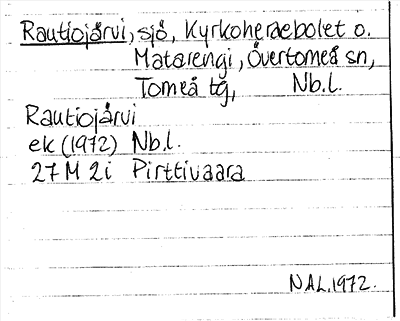 Rautiojärvi, sjö, Kyrkoherdebolet o.
Matarengi, Övertorneå sn,
Torneå tg, Nb.l.
Rautiojärvi
ek (1972) Nb.l.
27 M 2i Pirttivaara
NAL.1972.